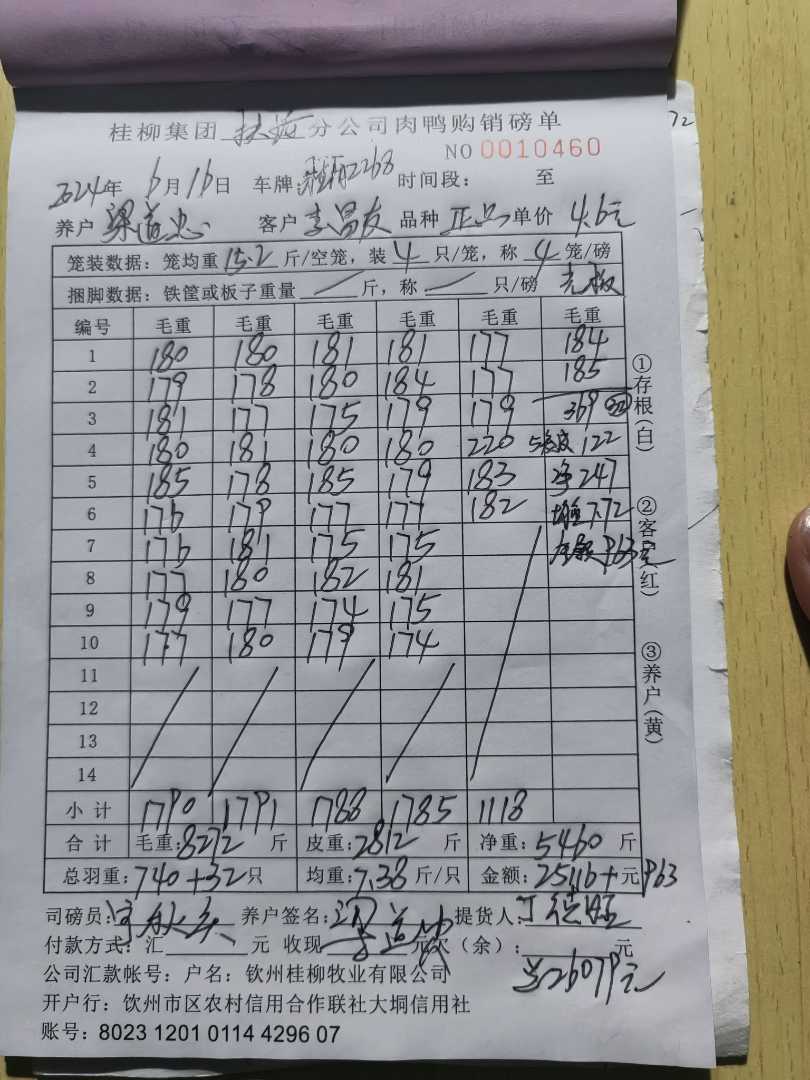 72
桂柳集团 扶绥 分公司肉鸭购销磅单
NO 0010460
2024年 6月16日 车牌: 2268 时间段: 至
养户 梁道忠 客户 李昌友 品种 正品 单价 4.6元
笼装数据: 笼均重 15.2 斤/空笼, 装 4 只/笼, 称 4 笼/磅
捆脚数据: 铁筐或板子重量 / 斤, 称 / 只/磅 光板
编号 毛重 毛重 毛重 毛重 毛重 毛重
1 180 180 181 181 177 184
2 179 178 180 184 177 185
3 181 177 175 179 179 369 ㉜
4 180 181 180 180 220 122
5 185 178 185 179 183 净247
6 176 179 177 177 182 7.72
7 176 181 175 175 963
8 177 180 182 181
9 179 177 174 175
10 177 180 179 174
11
12
13
14
小计 1790 1791 1788 1785 1118
合计 毛重: 8272 斤 皮重: 2812 斤 净重: 5460 斤
总羽重: 740+32 只 均重: 7.38 斤/只 金额: 25116+ 元 963
司磅员: 养户签名: 提货人:
付款方式: 汇 元 收现 元欠(余): 元
公司汇款帐号: 户名: 钦州桂柳牧业有限公司 26079元
开户行: 钦州市区农村信用合作联社大垌信用社
账号: 8023 1201 0114 4296 07
①存根(白)
②客户(红)
③养户(黄)